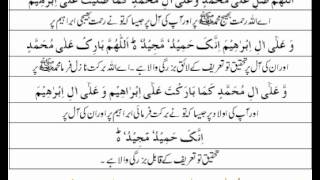 اَللّٰهُمَّ صَلِّ عَلٰى مُحَمَّدٍ وَّ عَلٰى اٰلِ مُحَمَّدٍ كَمَا صَلَّيْتَ عَلٰى اِبْرَاهِيْمَ
اے اللہ رحمت بھیج محمد ﷺ پر اور آپ کی آل پر جیسا کہ تو نے رحمت بھیجی ابراہیم پر
وَ عَلٰى اٰلِ اِبْرَاهِيْمَ اِنَّكَ حَمِيْدٌ مَّجِيْدٌ ؕ اَللّٰهُمَّ بَارِكْ عَلٰى مُحَمَّدٍ
اور ان کی آل پر تحقیق تو تعریف کے لائق بزرگی والا ہے۔ اے اللہ برکت نازل فرما محمد ﷺ پر
وَّ عَلٰى اٰلِ مُحَمَّدٍ كَمَا بَارَكْتَ عَلٰى اِبْرَاهِيْمَ وَ عَلٰى اٰلِ اِبْرَاهِيْمَ
اور آپ کی اولاد پر جیسا کہ تو نے برکت فرمائی ابراہیم پر اور ان کی آل پر
اِنَّكَ حَمِيْدٌ مَّجِيْدٌ ؕ
تحقیق تو تعریف کے قابل بزرگی والا ہے۔